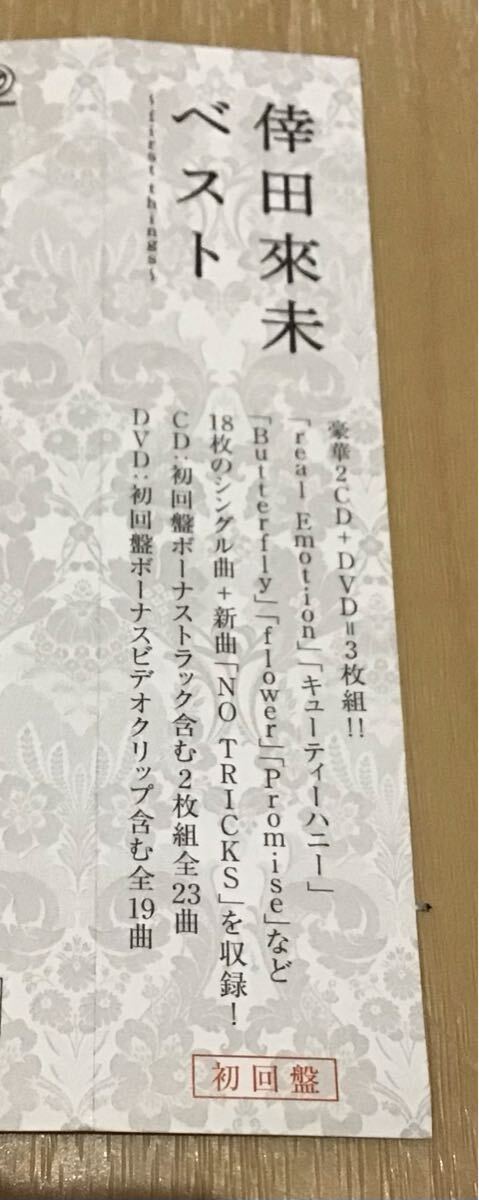 倖田來未
ベスト
~first things~
豪華2CD+DVD=3枚組!!
「real Emotion」「キューティーハニー」
「Butterfly」「flower」「Promise」など
18枚のシングル曲+新曲「NO TRICKS」を収録!
CD:初回盤ボーナストラック含む2枚組全23曲
DVD:初回盤ボーナスビデオクリップ含む全19曲
初回盤